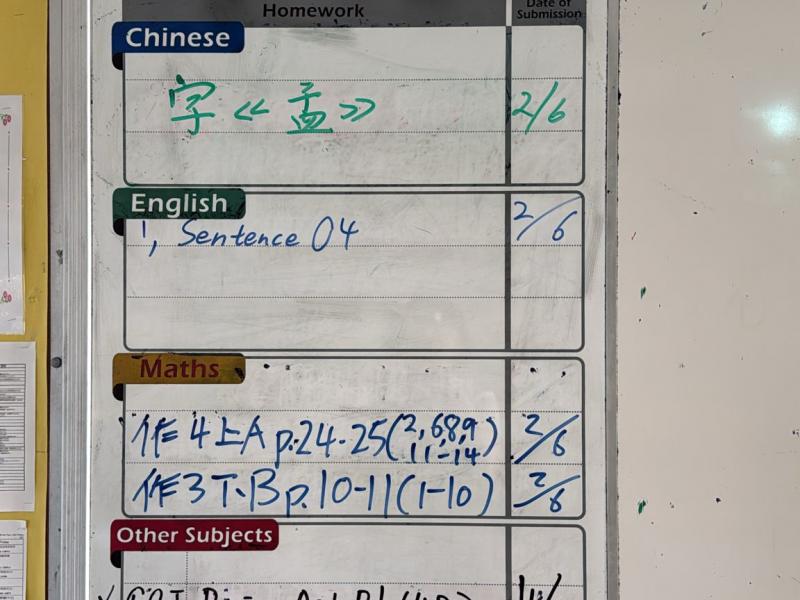 Homework
Date of Submission
Chinese
字《孟》 2/6
English
1, Sentence 04 2/6
Maths
作4上A p.24-25(2,6,8,9 11-14) 2/6
作3下B p.10-11(1-10) 2/6
Other Subjects